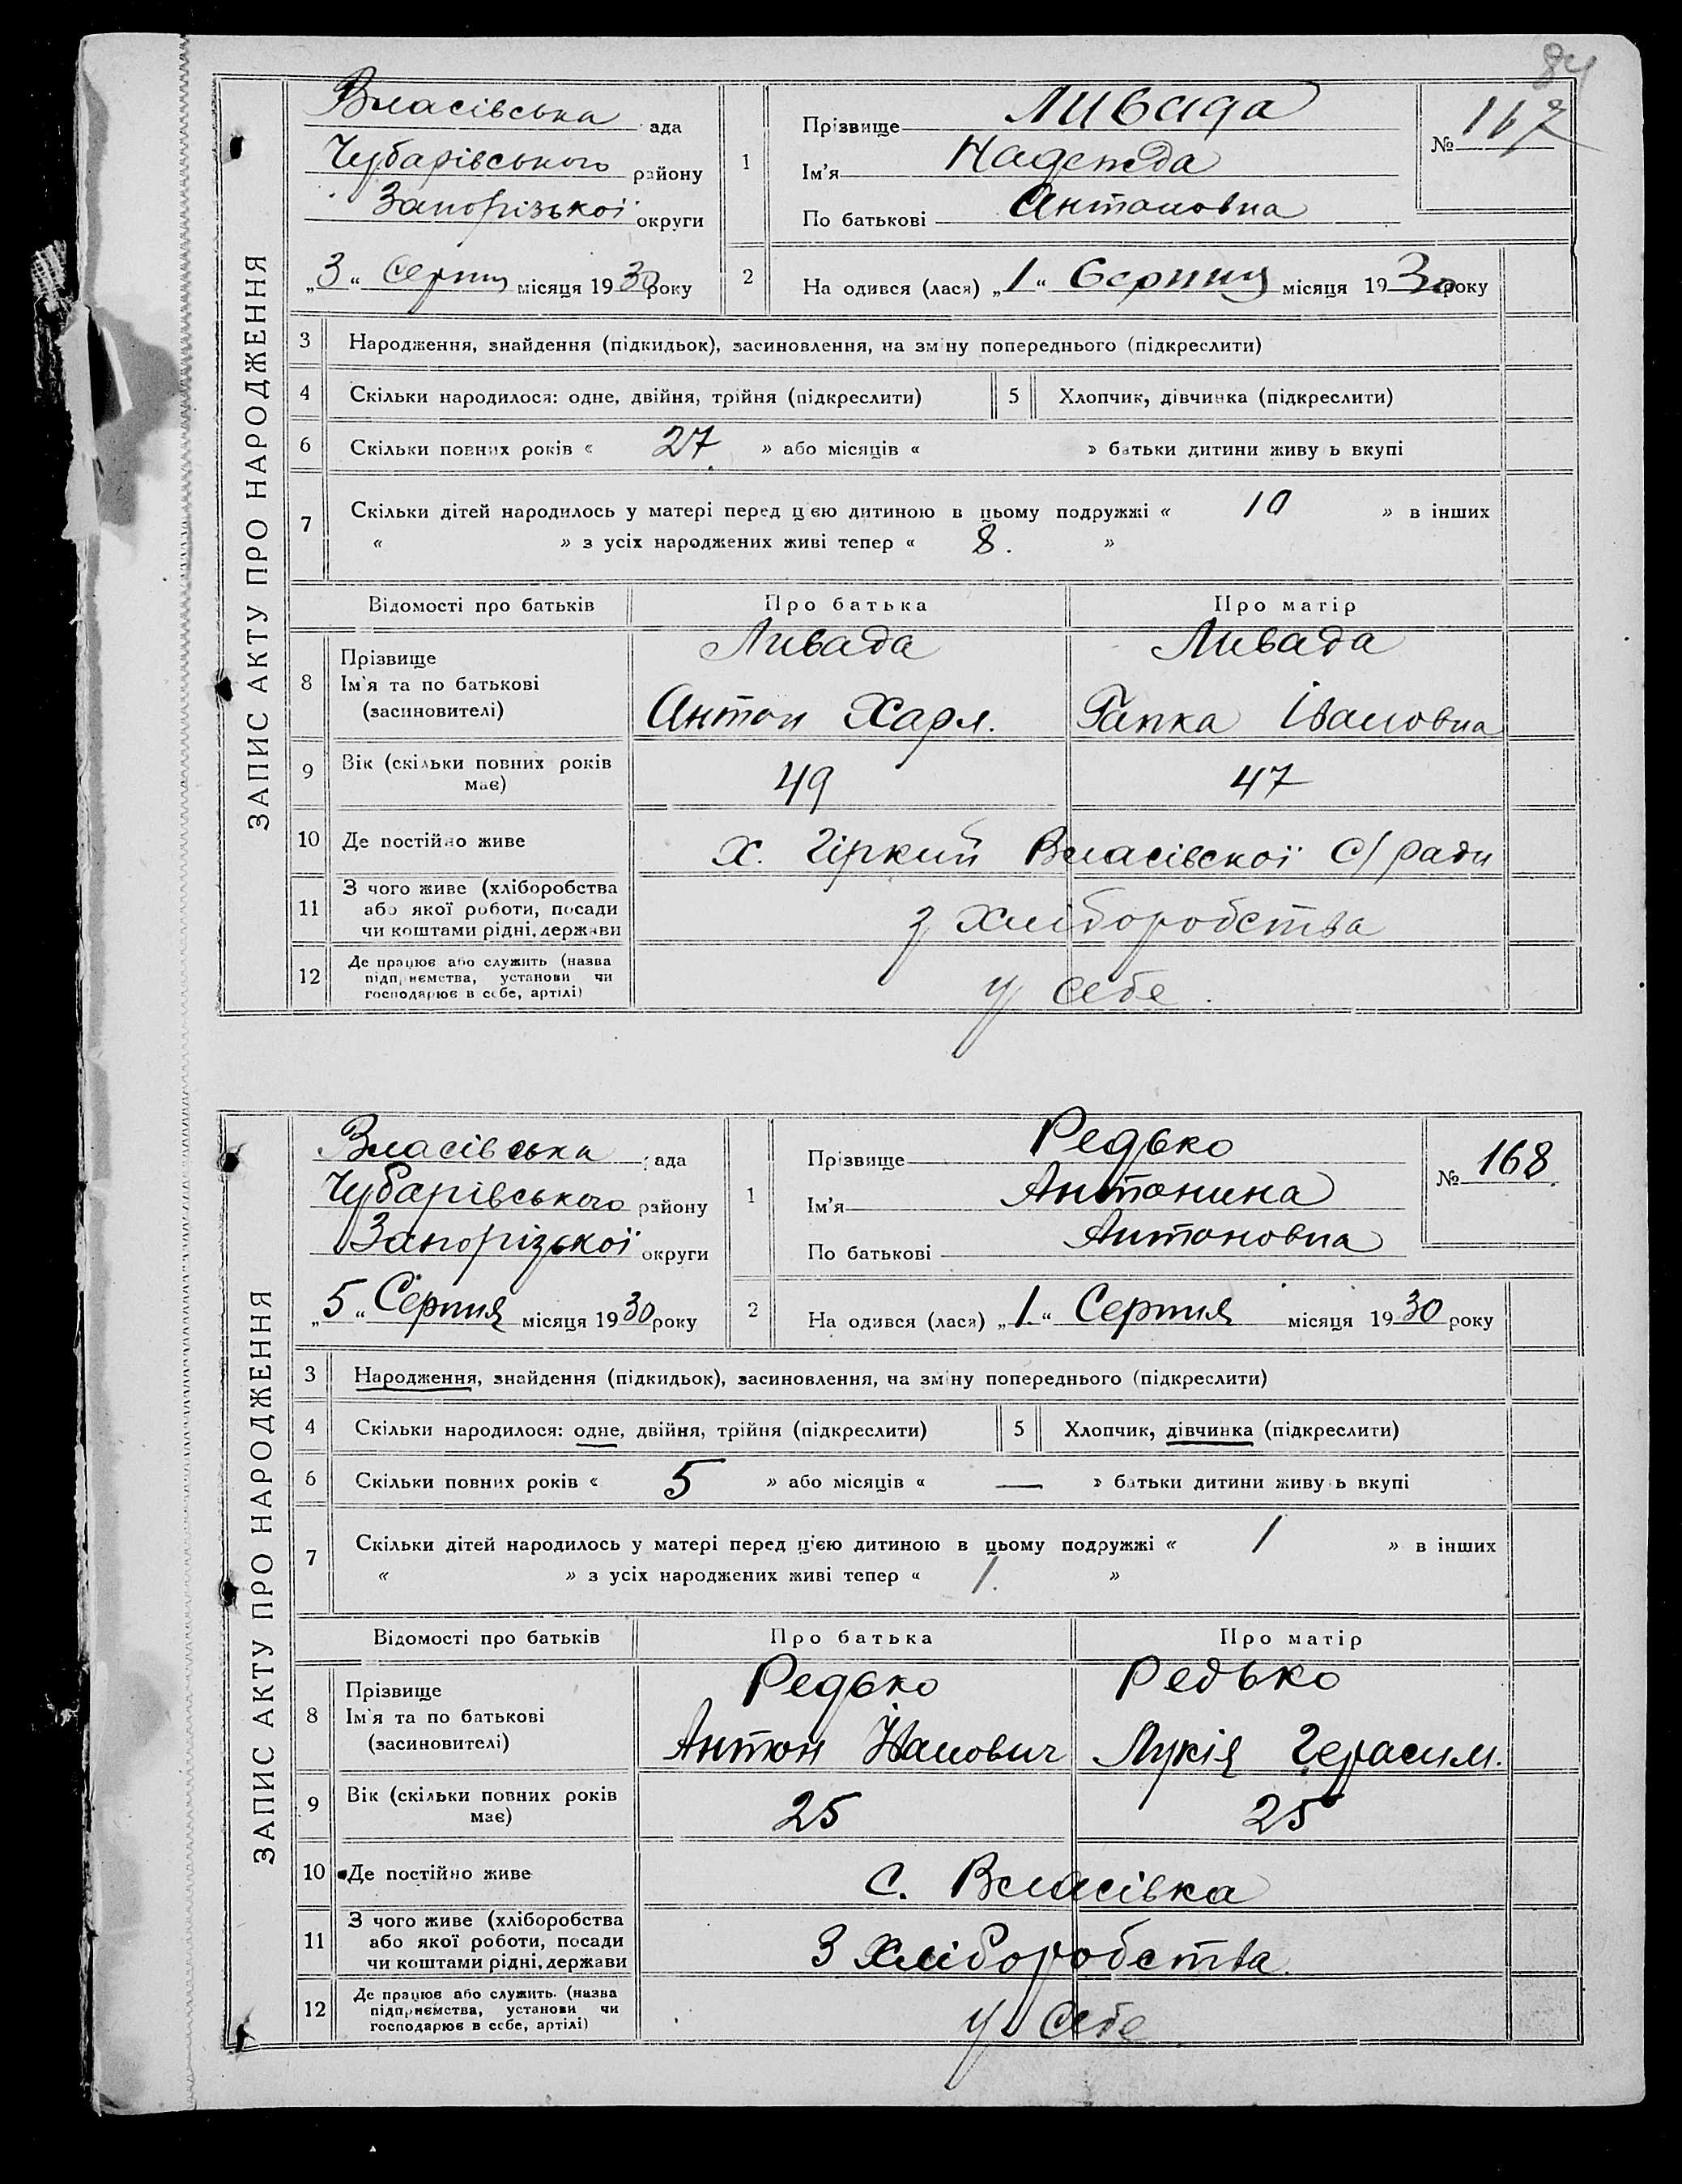 84
ЗАПИС АКТУ ПРО НАРОДЖЕННЯ
Власівська рада
Чубарівського району
Запорізької округи
„3“ Серпня місяця 1930 року
1
Прізвище Ливада
Ім'я Надежда
По батькові Антоновна
№ 167
2 На одився (лася) „1“ Серпня місяця 1930 року
3 Народження, знайдення (підкидьок), засиновлення, на зміну попереднього (підкреслити)
4 Скільки народилося: одне, двійня, трійня (підкреслити) 5 Хлопчик, дівчинка (підкреслити)
6 Скільки повних років « 27 » або місяців « » батьки дитини живу ь вкупі
7 Скільки дітей народилось у матері перед цією дитиною в цьому подружжі « 10 » в інших
« » з усіх народжених живі тепер « 8. »
Відомості про батьків Про батька Про матір
8 Прізвище Ливада Ливада
Ім'я та по батькові
(засиновителі) Антон Харл. Гапка Івановна
9 Вік (скільки повних років має) 49 47
10 Де постійно живе х. Гіркий Власівскої с/ради
11 З чого живе (хліборобства
або якої роботи, посади
чи коштами рідні, держави з хліборобства
12 Де працює або служить (назва
підприємства, установи чи
господарює в себе, артілі) у себе.
ЗАПИС АКТУ ПРО НАРОДЖЕННЯ
Власівська рада
Чубарівського району
Запорізької округи
„5“ Серпня місяця 1930 року
1
Прізвище Редько
Ім'я Антонина
По батькові Антоновна
№ 168.
2 На одився (лася) „1“ Серпня місяця 1930 року
3 Народження, знайдення (підкидьок), засиновлення, на зміну попереднього (підкреслити)
4 Скільки народилося: одне, двійня, трійня (підкреслити) 5 Хлопчик, дівчинка (підкреслити)
6 Скільки повних років « 5 » або місяців « — » батьки дитини живу ь вкупі
7 Скільки дітей народилось у матері перед ц'єю дитиною в цьому подружжі « 1 » в інших
« » з усіх народжених живі тепер « 1. »
Відомості про батьків Про батька Про матір
8 Прізвище Редько Редько
Ім'я та по батькові
(засиновителі) Антон Іванович Лукія Герасим.
9 Вік (скільки повних років має) 25 25
10 Де постійно живе с. Власівка
11 З чого живе (хліборобства
або якої роботи, посади
чи коштами рідні, держави З хліборобства.
12 Де працює або служить (назва
підприємства, установи чи
господарює в себе, артілі) у себе